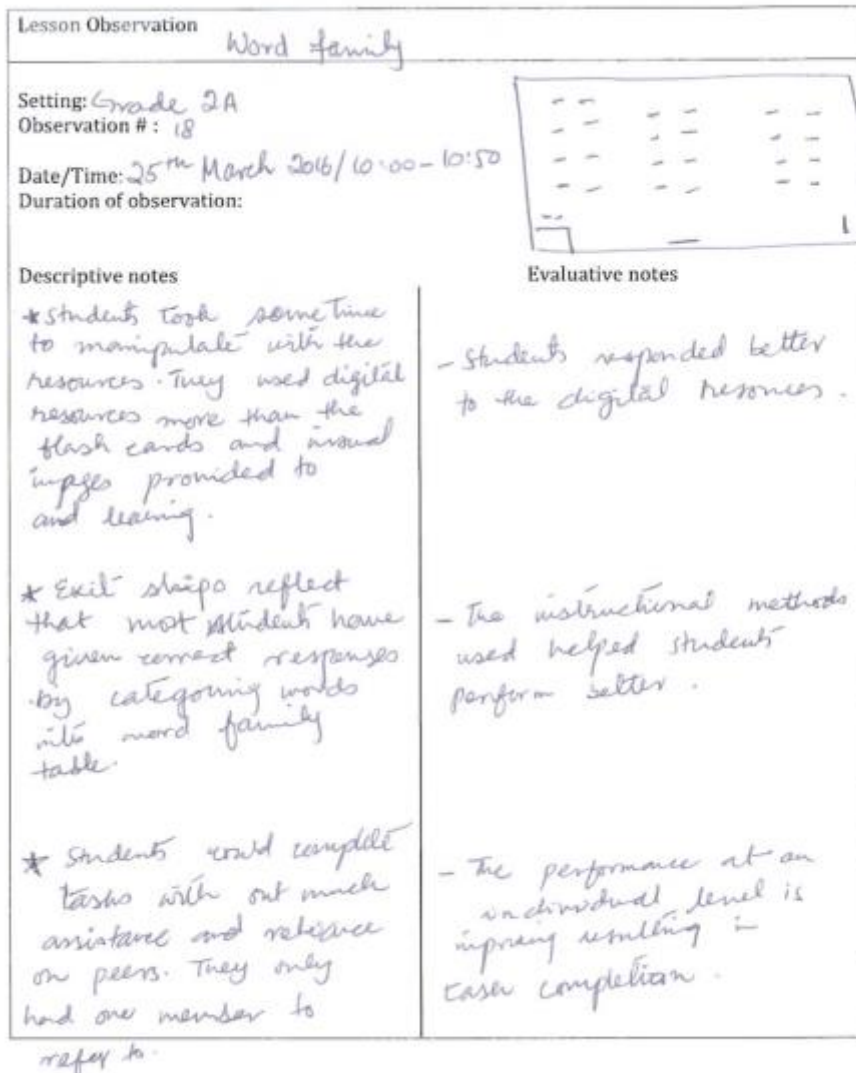 Lesson Observation
Word family
Setting: Grade 2A
Observation # : 18
Date/Time: 25th March 2016/10:00-10:50
Duration of observation:
Descriptive notes
* Students took some time
to manipulate with the
resources. They used digital
resources more than the
flash cards and visual
images provided to
and learning.
* Exit slips reflect
that most students have
given correct responses
by categoring words
into word family
table.
* Students could complete
tasks with out much
assistance and reliance
on peers. They only
had one member to
refer to.
Evaluative notes
- Students responded better
to the digital resources.
- The instructional methods
used helped students
perform better.
- The performance at an
individual level is
improving resulting in
completion.